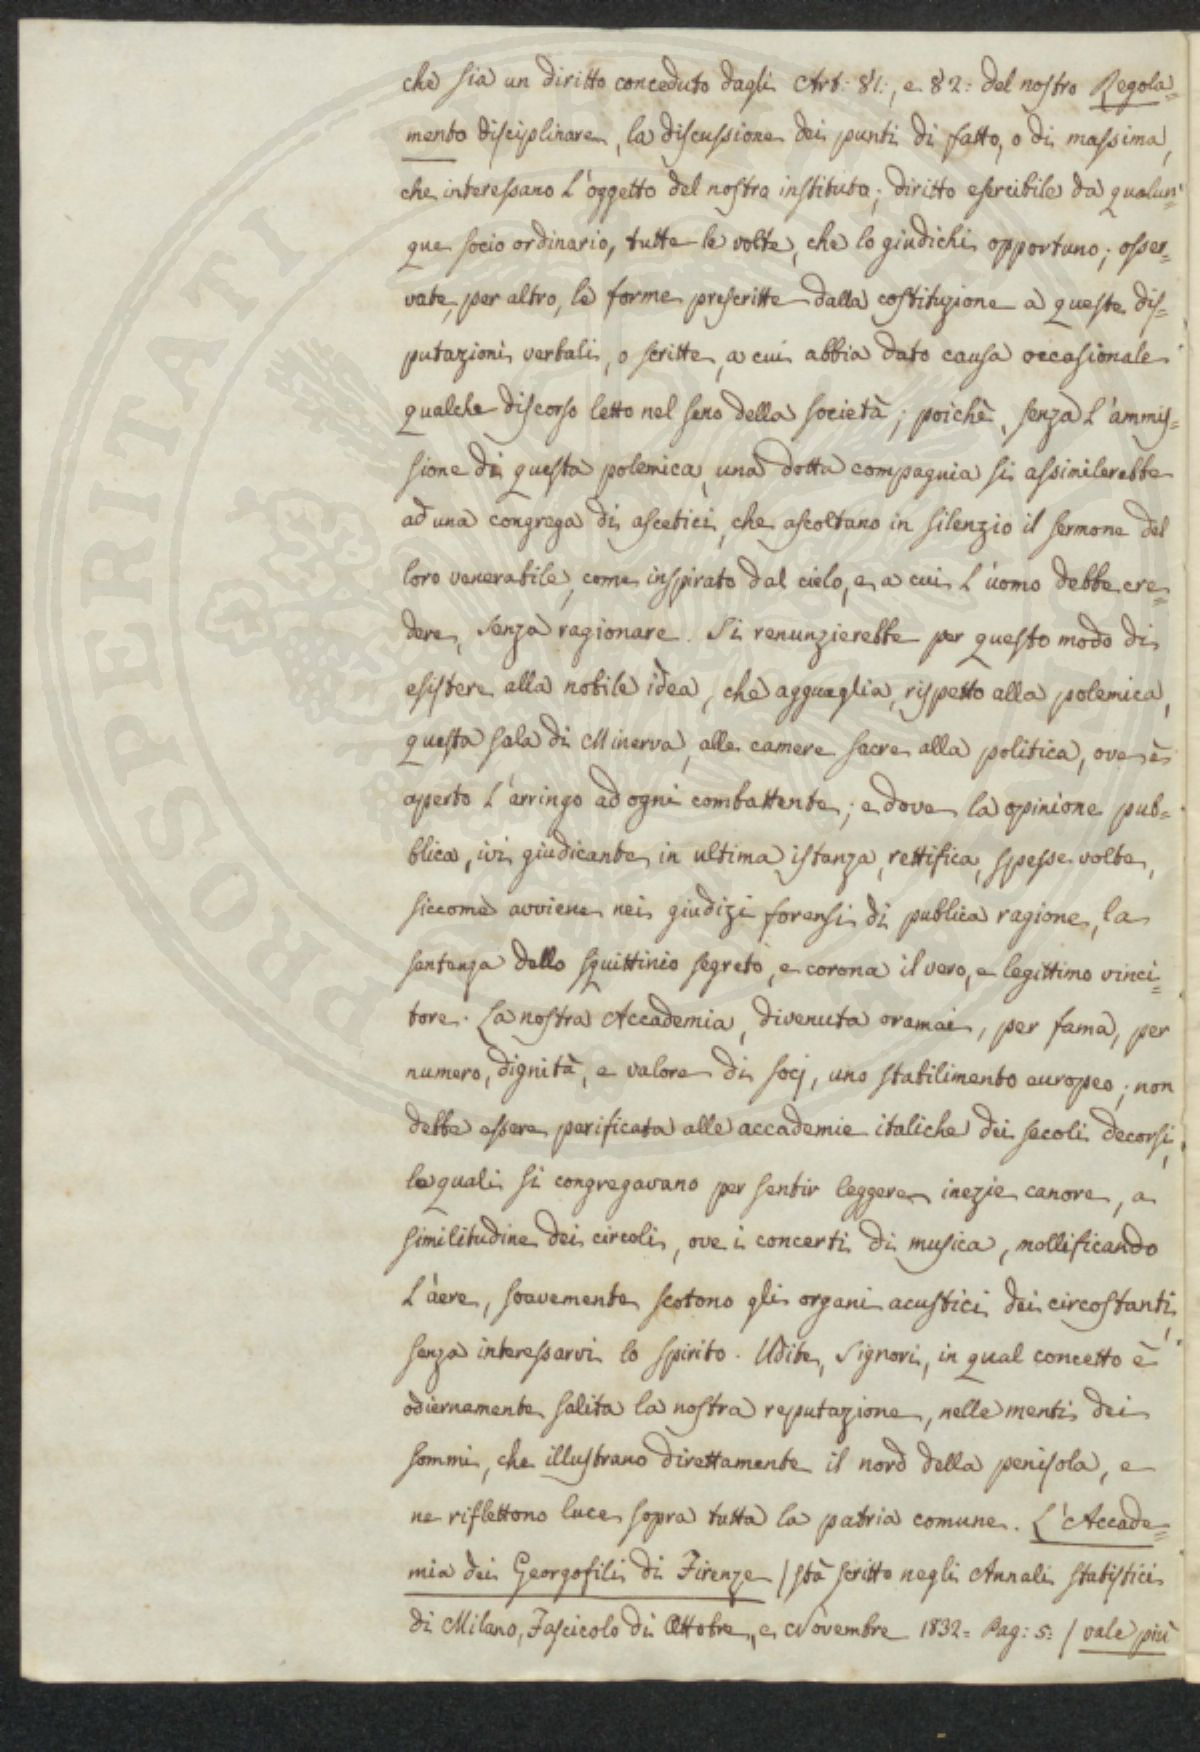 che sia un diritto conceduto dagli Art: 81:, e 82: del nostro Regola=
mento disciplinare, la discussione dei punti di fatto, o di massima,
che interessano l'oggetto del nostro instituto; diritto esercibile da qualun=
que socio ordinario, tutte le volte, che lo giudichi opportuno; osser=
vate, per altro, le forme prescritte dalla costituzione a queste dis=
putazioni verbali, o scritte, a cui abbia dato causa occasionale
qualche discorso letto nel seno della società; poichè, senza l'ammis=
sione di questa polemica, una dotta compagnia si assimilerebbe
ad una congrega di ascetici, che ascoltano in silenzio il sermone del
loro venerabile, come inspirato dal cielo, e a cui l'uomo debbe cre=
dere, senza ragionare. Si renunzierebbe per questo modo di
esistere alla nobile idea, che agguaglia, rispetto alla polemica,
questa sala di Minerva, alle camere sacre alla politica, ove è
aperto l'arringo ad ogni combattente; e dove la opinione pub=
blica, ivi giudicante in ultima istanza, rettifica, spesse volte,
siccome avviene nei giudizi forensi di publica ragione, la
sentenza dello squittinio segreto, e corona il vero, e legittimo vinci=
tore. La nostra Accademia, divenuta oramai, per fama, per
numero, dignità, e valore di socj, uno stabilimento europeo; non
debbe essere perificata alle accademie italiche dei secoli decorsi,
le quali si congregavano per sentir leggere inezie canore, a
similitudine dei circoli, ove i concerti di musica, mollificando
l'aere, soavemente scotono gli organi acustici dei circostanti,
senza interessarvi lo spirito. Udite, Signori, in qual concetto è
odiernamente salita la nostra reputazione, nelle menti dei
sommi, che illustrano direttamente il nord della penisola, e
ne riflettono luce sopra tutta la patria comune. L'Accade=
mia dei Georgofili di Firenze / stà scritto negli Annali statistici
di Milano, Fascicolo di Ottobre, e Novembre 1832= Pag: 5: / vale più
PROSPERITATI